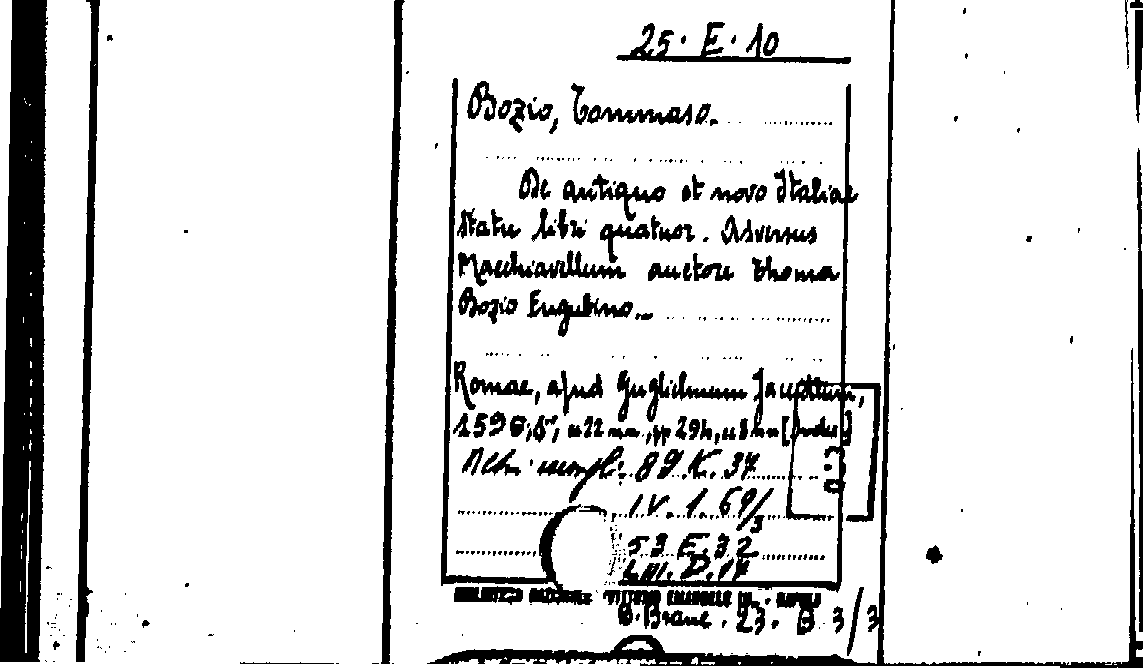 25. E. 10
Bozio, Tommaso.
De antiquo et novo Italiae
statu libri quatuor. Adversus
Macchiavellum auctore Thoma
Bozio Eugubino.
Romae, apud Guglielmum Jacottum,
1596, 8°, cc 22 nn, pp 294, cc 8 nn [Index]
Altri esempl: 89. K. 37
IV. 1. 69/3
53 E. 32
LIII. D. 17
BIBLIOTECA NAZIONALE VITTORIO EMANUELE III - NAPOLI
B. Branc. 23. B 3/3